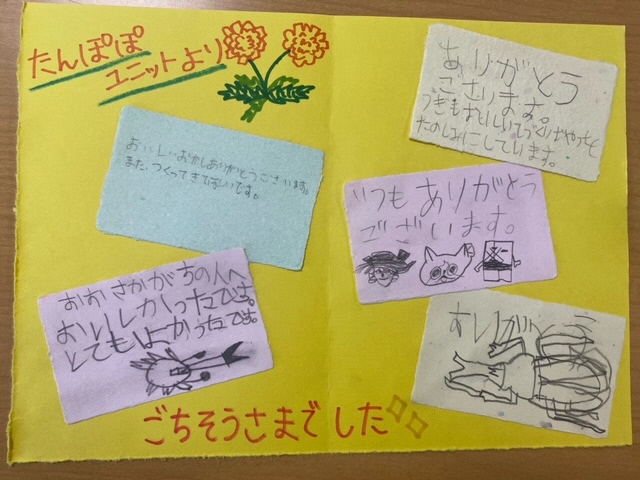 たんぽぽ
ユニットより
ありがとう
ござります。
たのしみにしています。
おいしいおかしありがとうございます。
また、つくってきてほしいです。
いつもありがとう
ございます。
おおさかがちの人へ
おいしかったです。
とてもよかったです。
ありがとう
ごちそうさまでした